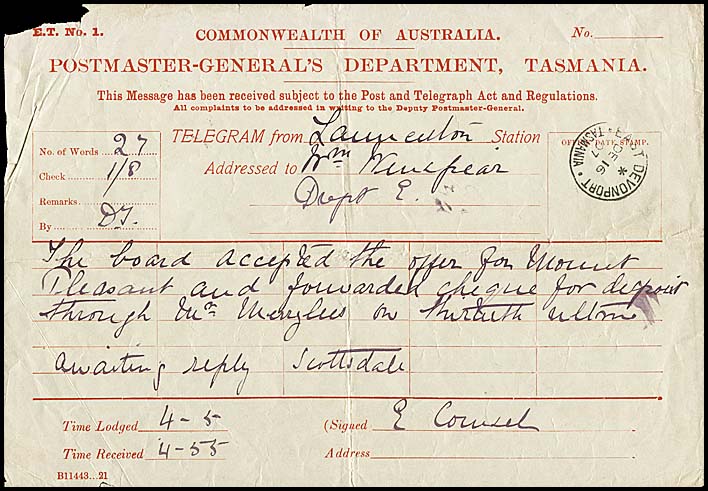 E.T. No. 1.
COMMONWEALTH OF AUSTRALIA.
No.
POSTMASTER-GENERAL'S DEPARTMENT, TASMANIA.
This Message has been received subject to the Post and Telegraph Act and Regulations.
All complaints to be addressed in writing to the Deputy Postmaster-General.
No. of Words 27
Check 1/8
Remarks
By DJ.
TELEGRAM from Launceston Station
Addressed to Wm
Dvpt E.
OFFICE DATE STAMP.
EAST DEVONPORT
TASMANIA
DE 16
07
The board accepted the offer for Mount
Pleasant and forwarded cheque for deposit
through Mr Merrylees on thirtieth ultimo
Awaiting reply Scottsdale
Time Lodged 4-5
Time Received 4-55
(Signed E Counsel
Address
B11443...21